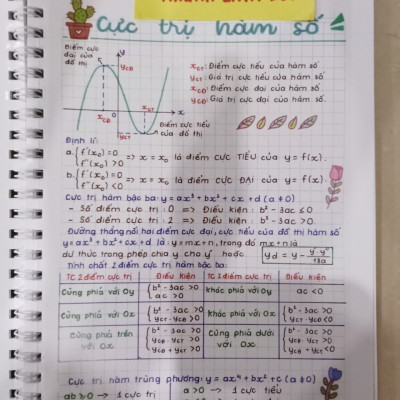 Cực trị hàm số
Điểm cực đại của đồ thị
y
yCĐ
xCĐ
xCT
x
yCT
Điểm cực tiểu của đồ thị
xCT: Điểm cực tiểu của hàm số
yCT: Giá trị cực tiểu của hàm số
xCĐ: Điểm cực đại của hàm số
yCĐ: Giá trị cực đại của hàm số
Định lí:
a. { f'(x₀) = 0
f''(x₀) > 0 => x = x₀ là điểm cực TIỂU của y = f(x).
b. { f'(x₀) = 0
f''(x₀) < 0 => x = x₀ là điểm cực ĐẠI của y = f(x).
Cực trị hàm bậc ba: y = ax³ + bx² + cx + d (a ≠ 0)
- Số điểm cực trị: 0 => Điều kiện: b² - 3ac ≤ 0
- Số điểm cực trị: 2 => Điều kiện: b² - 3ac > 0.
Đường thẳng nối hai điểm cực đại, cực tiểu của đồ thị hàm số
y = ax³ + bx² + cx + d là: y = mx + n, trong đó mx + n là
dư thức trong phép chia y cho y' hoặc
Tính chất 2 điểm cực trị hàm bậc ba:
TC 2 điểm cực trị Điều kiện TC 2 điểm cực trị Điều kiện
Cùng phía với Oy { b² - 3ac > 0
ac > 0 Khác phía với Oy ac < 0
Cùng phía với Ox { b² - 3ac > 0
yCT · yCĐ > 0 Khác phía với Ox { b² - 3ac > 0
yCT · yCĐ < 0
Cùng phía trên với Ox { b² - 3ac > 0
yCĐ · yCT > 0
yCĐ + yCT > 0 Cùng phía dưới với Ox { b² - 3ac > 0
yCĐ · yCT > 0
yCĐ + yCT < 0
Cực trị hàm trùng phương: y = ax⁴ + bx² + c (a ≠ 0)
ab ≥ 0 → 1 cực trị a > 0 → 1 cực tiểu